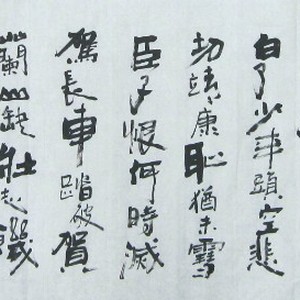 白了少年頭空悲
切靖康恥猶未雪
臣子恨何時滅
駕長車踏破賀
蘭山缺壯志饑